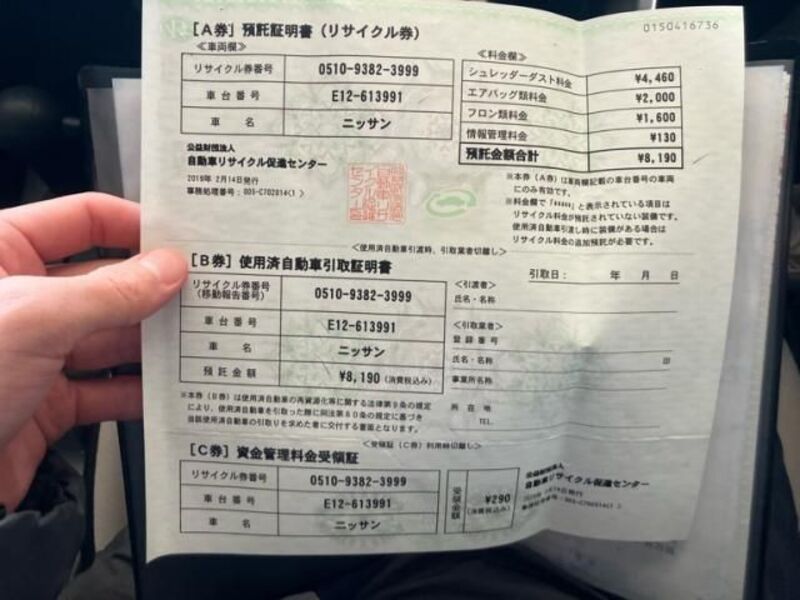 0150416736
[A券] 預託証明書(リサイクル券)
≪車両欄≫
リサイクル券番号 0510-9382-3999
車台番号 E12-613991
車名 ニッサン
≪料金欄≫
シュレッダーダスト料金 ¥4,460
エアバッグ類料金 ¥2,000
フロン類料金 ¥1,600
情報管理料金 ¥130
預託金額合計 ¥8,190
公益財団法人
自動車リサイクル促進センター
2019年 2月14日発行
事務処理番号:003-C702014(1 )
※本券(A券)は車両欄記載の車台番号の車両
にのみ有効です。
※料金欄で「*****」と表示されている項目は
リサイクル料金が預託されていない装備です。
使用済自動車引渡し時に装備がある場合は
リサイクル料金の追加預託が必要です。
<使用済自動車引渡時、引取業者切離し>
[B券] 使用済自動車引取証明書
引取日: 年 月 日
リサイクル券番号
(移動報告番号) 0510-9382-3999
車台番号 E12-613991
車名 ニッサン
預託金額 ¥8,190(消費税込み)
<引渡者>
氏名・名称
<引取業者>
登録番号
氏名・名称 印
事業所名称
所在地
TEL.
※本券(B券)は使用済自動車の再資源化等に関する法律第9条の規定
により、使用済自動車を引取った際に同法第80条の規定に基づき
当該使用済自動車の引取りを求めた者に交付する書面となります。
<受領証(C券)利用時切離し>
[C券] 資金管理料金受領証
リサイクル券番号 0510-9382-3999
車台番号 E12-613991
車名 ニッサン
受領金額 ¥290
(消費税込み)
公益財団法人
自動車リサイクル促進センター
2019年 2月14日発行
事務処理番号:003-C702014(1 )